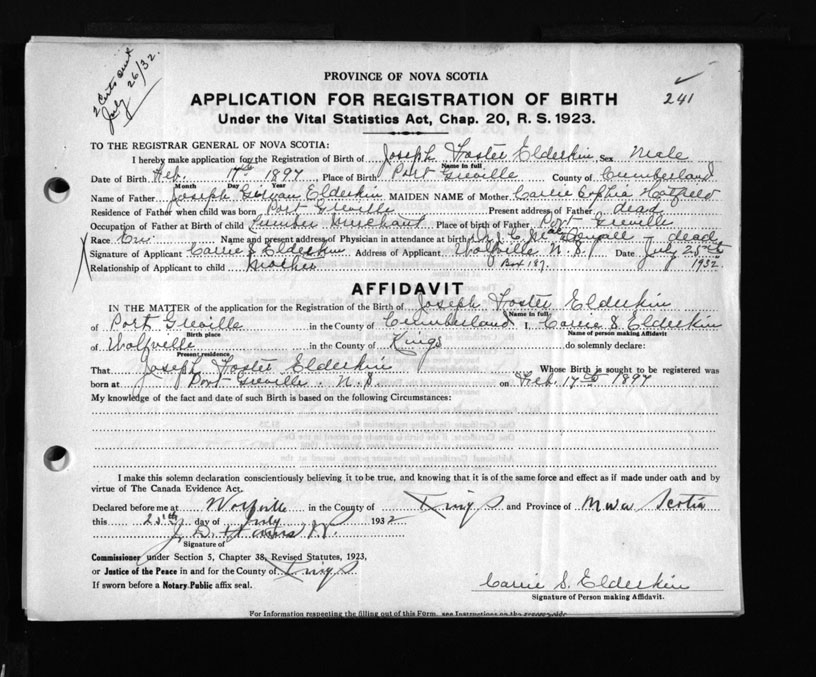 2 Certs Sent
July 26/32.
241
PROVINCE OF NOVA SCOTIA
APPLICATION FOR REGISTRATION OF BIRTH
Under the Vital Statistics Act, Chap. 20, R. S. 1923.
TO THE REGISTRAR GENERAL OF NOVA SCOTIA:
I hereby make application for the Registration of Birth of Joseph Foster Elderkin Sex Male
Name in full
Date of Birth Feb. 17th 1897, Place of Birth Port Greville County of Cumberland
Month Day Year
Name of Father Joseph Elderkin MAIDEN NAME of Mother Carrie Sophia Hatfield
Residence of Father when child was born Port Greville Present address of Father dead
Occupation of Father at Birth of child Lumber Merchant Place of birth of Father Port Greville
Race Name and present address of Physician in attendance at birth Dr. dead
Signature of Applicant Carrie S Elderkin Address of Applicant Wolfville N.S. Date July 25th
Relationship of Applicant to child Mother Box 187. 1932
AFFIDAVIT
IN THE MATTER of the application for the Registration of the Birth of Joseph Foster Elderkin
Name in full
of Port Greville in the County of Cumberland I, Carrie S. Elderkin
Birth place Name of person making Affidavit
of Wolfville in the County of Kings do solemnly declare:
Present residence
That Joseph Foster Elderkin Whose Birth is sought to be registered was
born at Port Greville. N.S. on Feb. 17th 1897
My knowledge of the fact and date of such Birth is based on the following Circumstances:
I make this solemn declaration conscientiously believing it to be true, and knowing that it is of the same force and effect as if made under oath and by
virtue of The Canada Evidence Act.
Declared before me at Wolfville in the County of Kings and Province of Nova Scotia
this 25th day of July 1932
Signature of
Commissioner under Section 5, Chapter 38, Revised Statutes, 1923,
or Justice of the Peace in and for the County of Kings
If sworn before a Notary Public affix seal.
Carrie S. Elderkin
Signature of Person making Affidavit.
For Information respecting the filling out of this Form, see Instructions on the reverse side